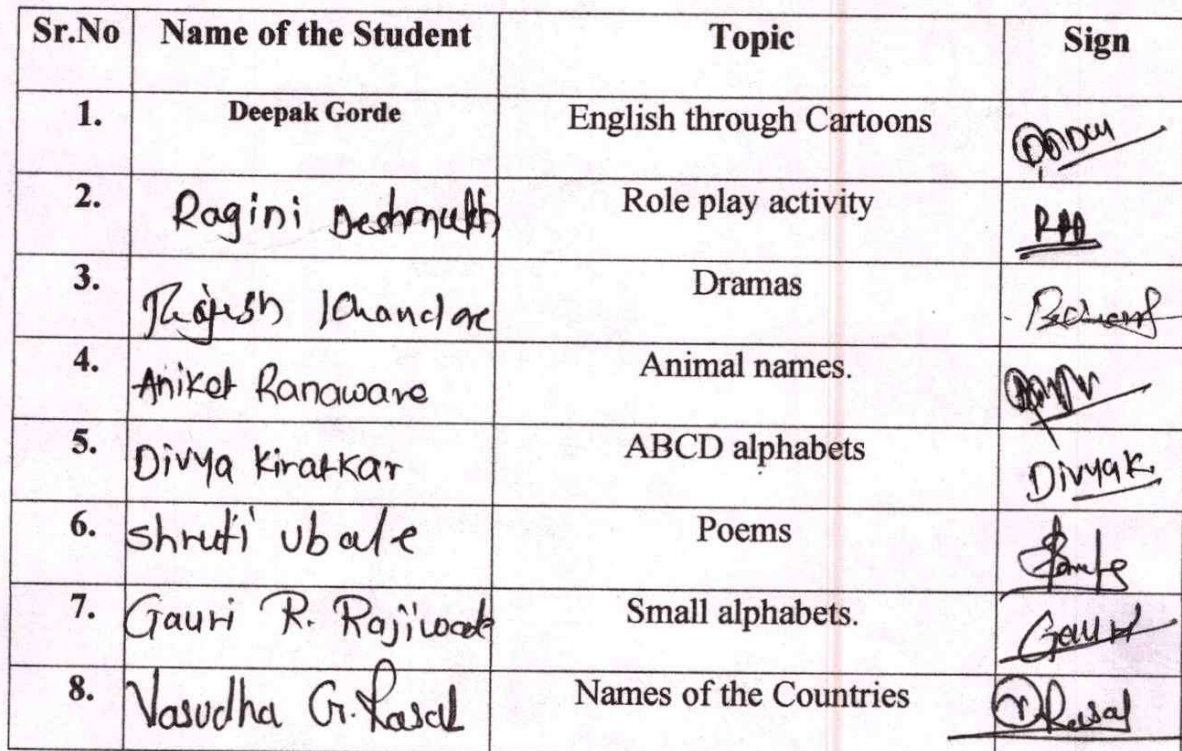 Sr.No Name of the Student Topic Sign
1. Deepak Gorde English through Cartoons
2. Ragini Deshmukh Role play activity
3. Rajesh Khandare Dramas
4. Aniket Ranaware Animal names.
5. Divya Kiratkar ABCD alphabets Divya K.
6. Shruti Ubale Poems
7. Gauri R. Rajiwade Small alphabets. Gauri
8. Vasudha G. Rasal Names of the Countries Rasal